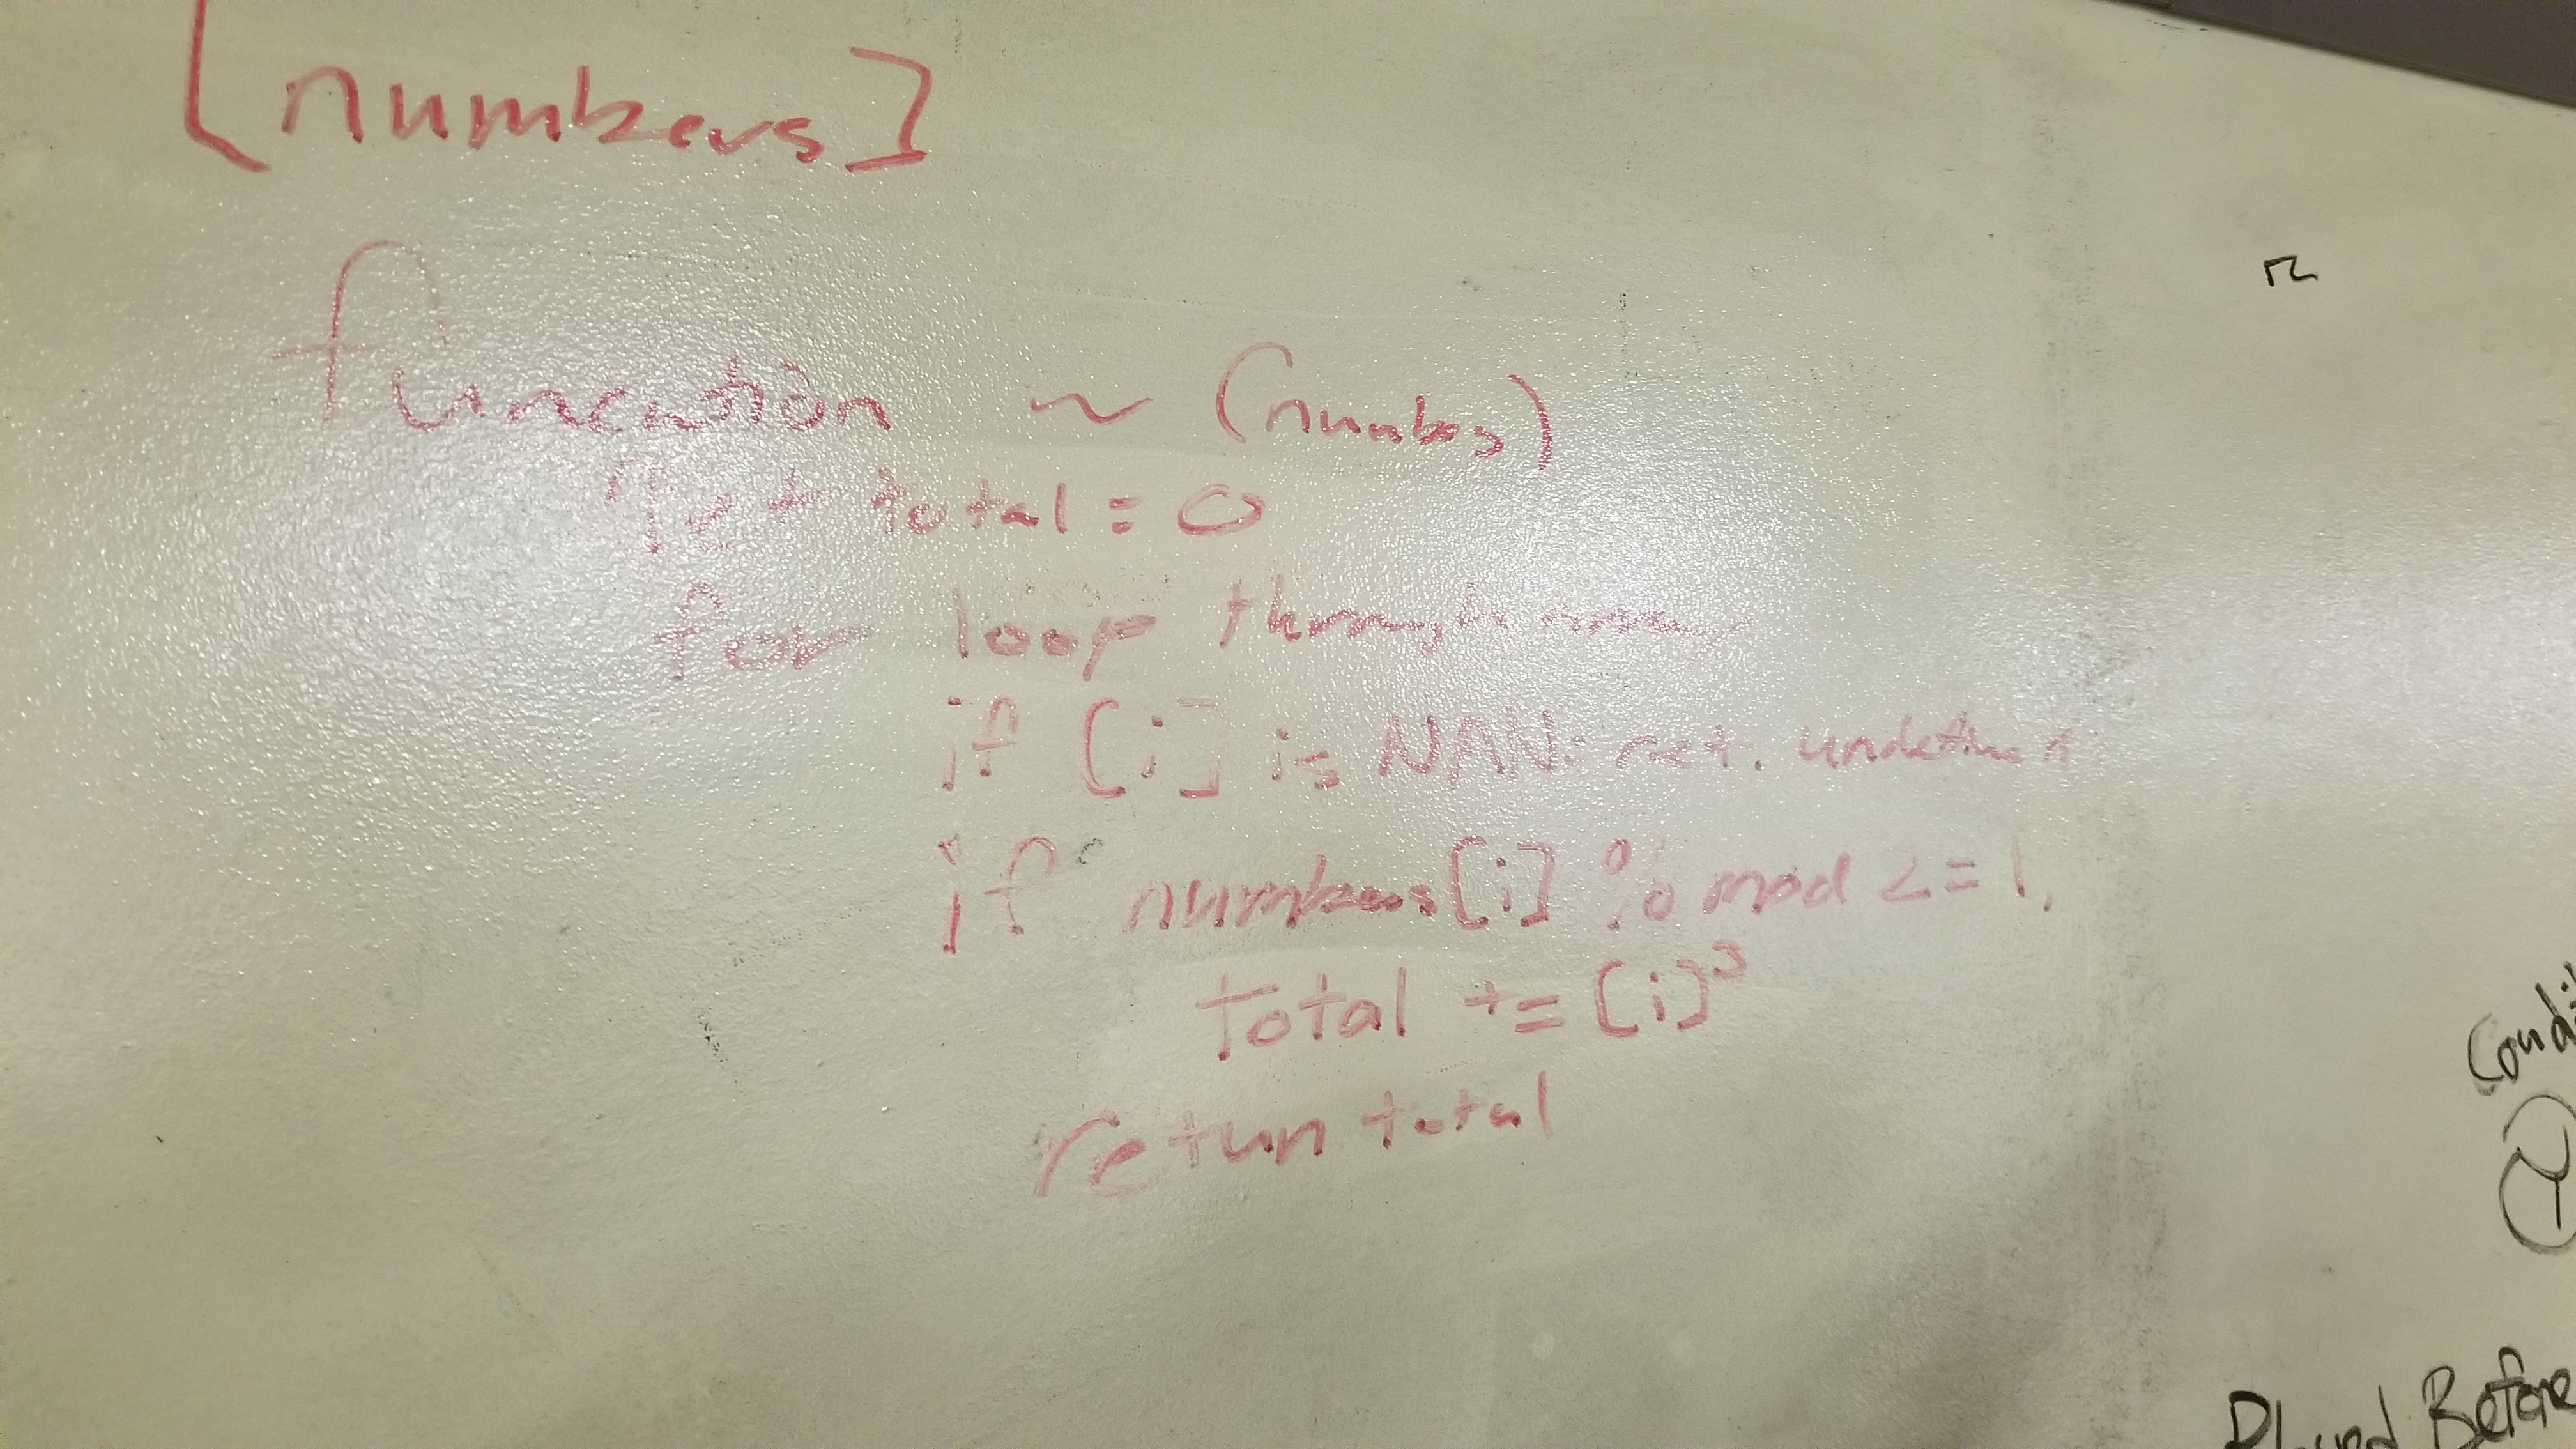 [numbers]
function ~ (numbers)
let total = 0
for loop through
if [i] is NAN: ret. undefined
if numbers[i] % mod <= 1,
total += [i]³
return total
Condi
Y
Played Before